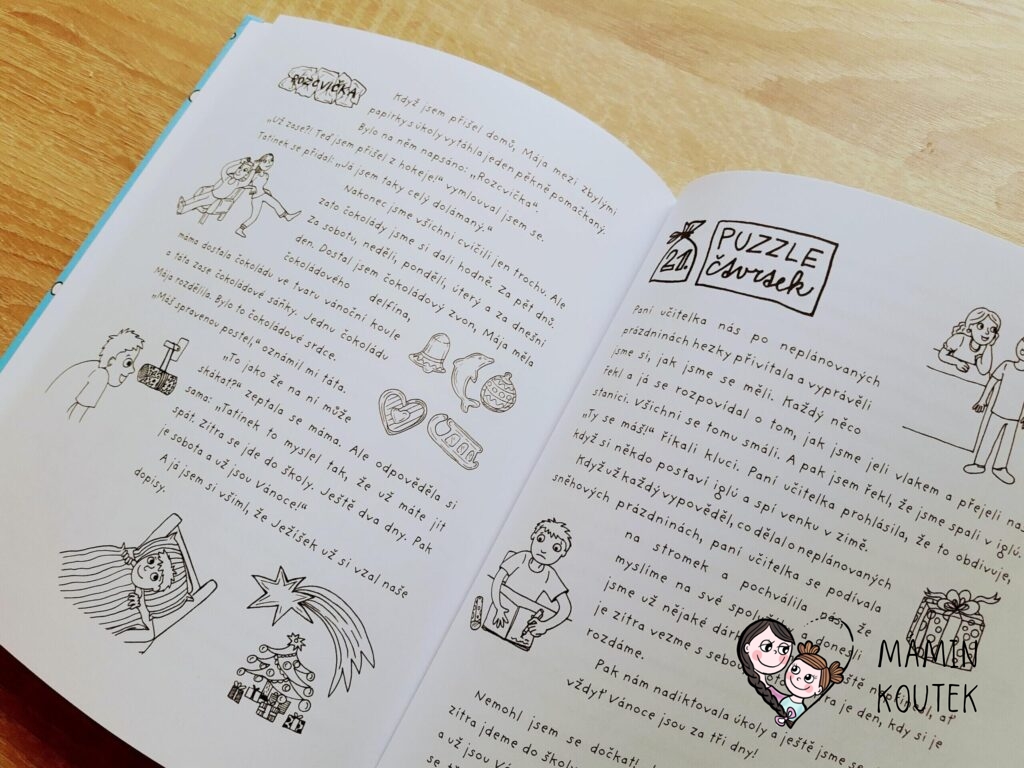 ROZCVIČKA
Když jsem přišel domů, Mája mezi zbylými
papírky s úkoly vytáhla jeden pěkně pomačkaný.
Bylo na něm napsáno: „Rozcvička“.
„Už zase?! Teď jsem přišel z hokeje!“ vymlouval jsem se.
Tatínek se přidal: „Já jsem taky celý dolámaný.“
Nakonec jsme všichni cvičili jen trochu. Ale
zato čokolády jsme si dali hodně. Za pět dnů.
Za sobotu, neděli, pondělí, úterý a za dnešní
den. Dostal jsem čokoládový zvon, Mája měla
čokoládového delfína,
máma dostala čokoládu ve tvaru vánoční koule
a táta zase čokoládové sáňky. Jednu čokoládu
Mája rozdělila. Bylo to čokoládové srdce.
„Máš spravenou postel,“ oznámil mi táta.
„To jako že na ní může
skákat?“ zeptala se máma. Ale odpověděla si
sama: „Tatínek to myslel tak, že už máte jít
spát. Zítra se jde do školy. Ještě dva dny. Pak
je sobota a už jsou Vánoce!“
A já jsem si všiml, že Ježíšek už si vzal naše
dopisy.
21.
PUZZLE
čtvrtek
Paní učitelka nás po neplánovaných
prázdninách hezky přivítala a vyprávěli
jsme si, jak jsme se měli. Každý něco
řekl a já se rozpovídal o tom, jak jsme jeli vlakem a přejeli na
stanici. Všichni se tomu smáli. A pak jsem řekl, že jsme spali v iglú.
„Ty se máš!“ říkali kluci. Paní učitelka prohlásila, že to obdivuje,
když si někdo postaví iglú a spí venku v zimě.
Když už každý vypověděl, co dělal o neplánovaných
sněhových prázdninách, paní učitelka se podívala
na stromek a pochválila nás, že
myslíme na své a donesli
jsme už nějaké
je zítra vezme s sebou je den, kdy si je
rozdáme.
Pak nám nadiktovala úkoly a ještě jsme se
vždyť Vánoce jsou za tři dny!
Nemohl jsem se dočkat!
zítra jdeme do školy
a už jsou
MÁMIN
KOUTEK